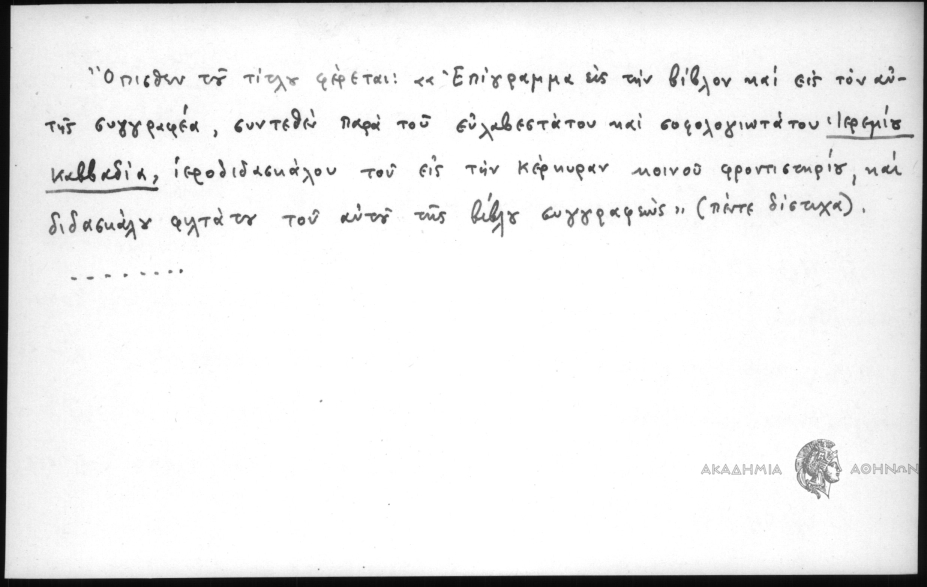 Ὄπισθεν τοῦ τίτλου φέρεται: «Ἐπίγραμμα εἰς τὴν βίβλον καὶ εἰς τὸν αὐ-
τῆς συγγραφέα, συντεθὲν παρὰ τοῦ εὐλαβεστάτου καὶ σοφολογιωτάτου Ἱερεμίου
Καββαδία, ἱεροδιδασκάλου τοῦ εἰς τὴν Κέρκυραν κοινοῦ φροντιστηρίου, καὶ
διδασκάλου φιλτάτου τοῦ αὐτοῦ τῆς βίβλου συγγραφέως» (πέντε δίστιχα).
.........
ΑΚΑΔΗΜΙΑ ΑΘΗΝΩΝ